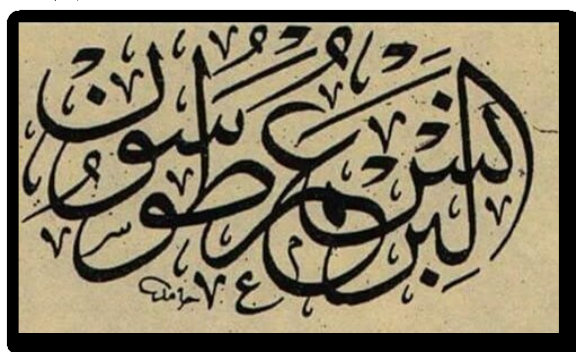 البرنس عمر طوسون